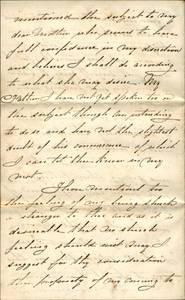 mentioned the subject to my
dear Mother who seems to have
full confidence in my discretion
and believes I shall do according
to what she may desire. My
Father I have not yet spoken to on
the subject though am intending
to do so and have not the slightest
doubt of his concurrence of which
I can let thee know in my
next.
I have mentioned too
the feeling of my being such
a stranger to thee and as it is
desirable that no such
feeling should exist may I
suggest for thy consideration
the propriety of my coming to